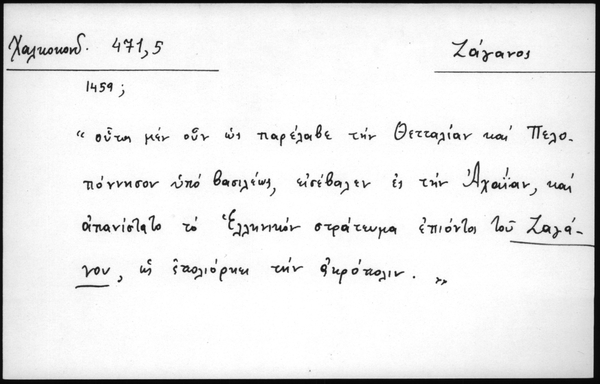 Χαλκοκονδ. 471,5
Ζάγανος
1459;
“ οὗτος μέν οὖν ὡς παρέλαβε τήν Θετταλίαν καί Πελο-
πόννησον ὑπό βασιλέως, εἰσέβαλεν ἐς τήν Ἀχαΐαν, καί
ἀπανίστατο τό Ἑλληνικόν στράτευμα ἐπιόντος τοῦ Ζαγά-
νου, ὡς ἐπολιόρκει τήν ἀκρόπολιν. „